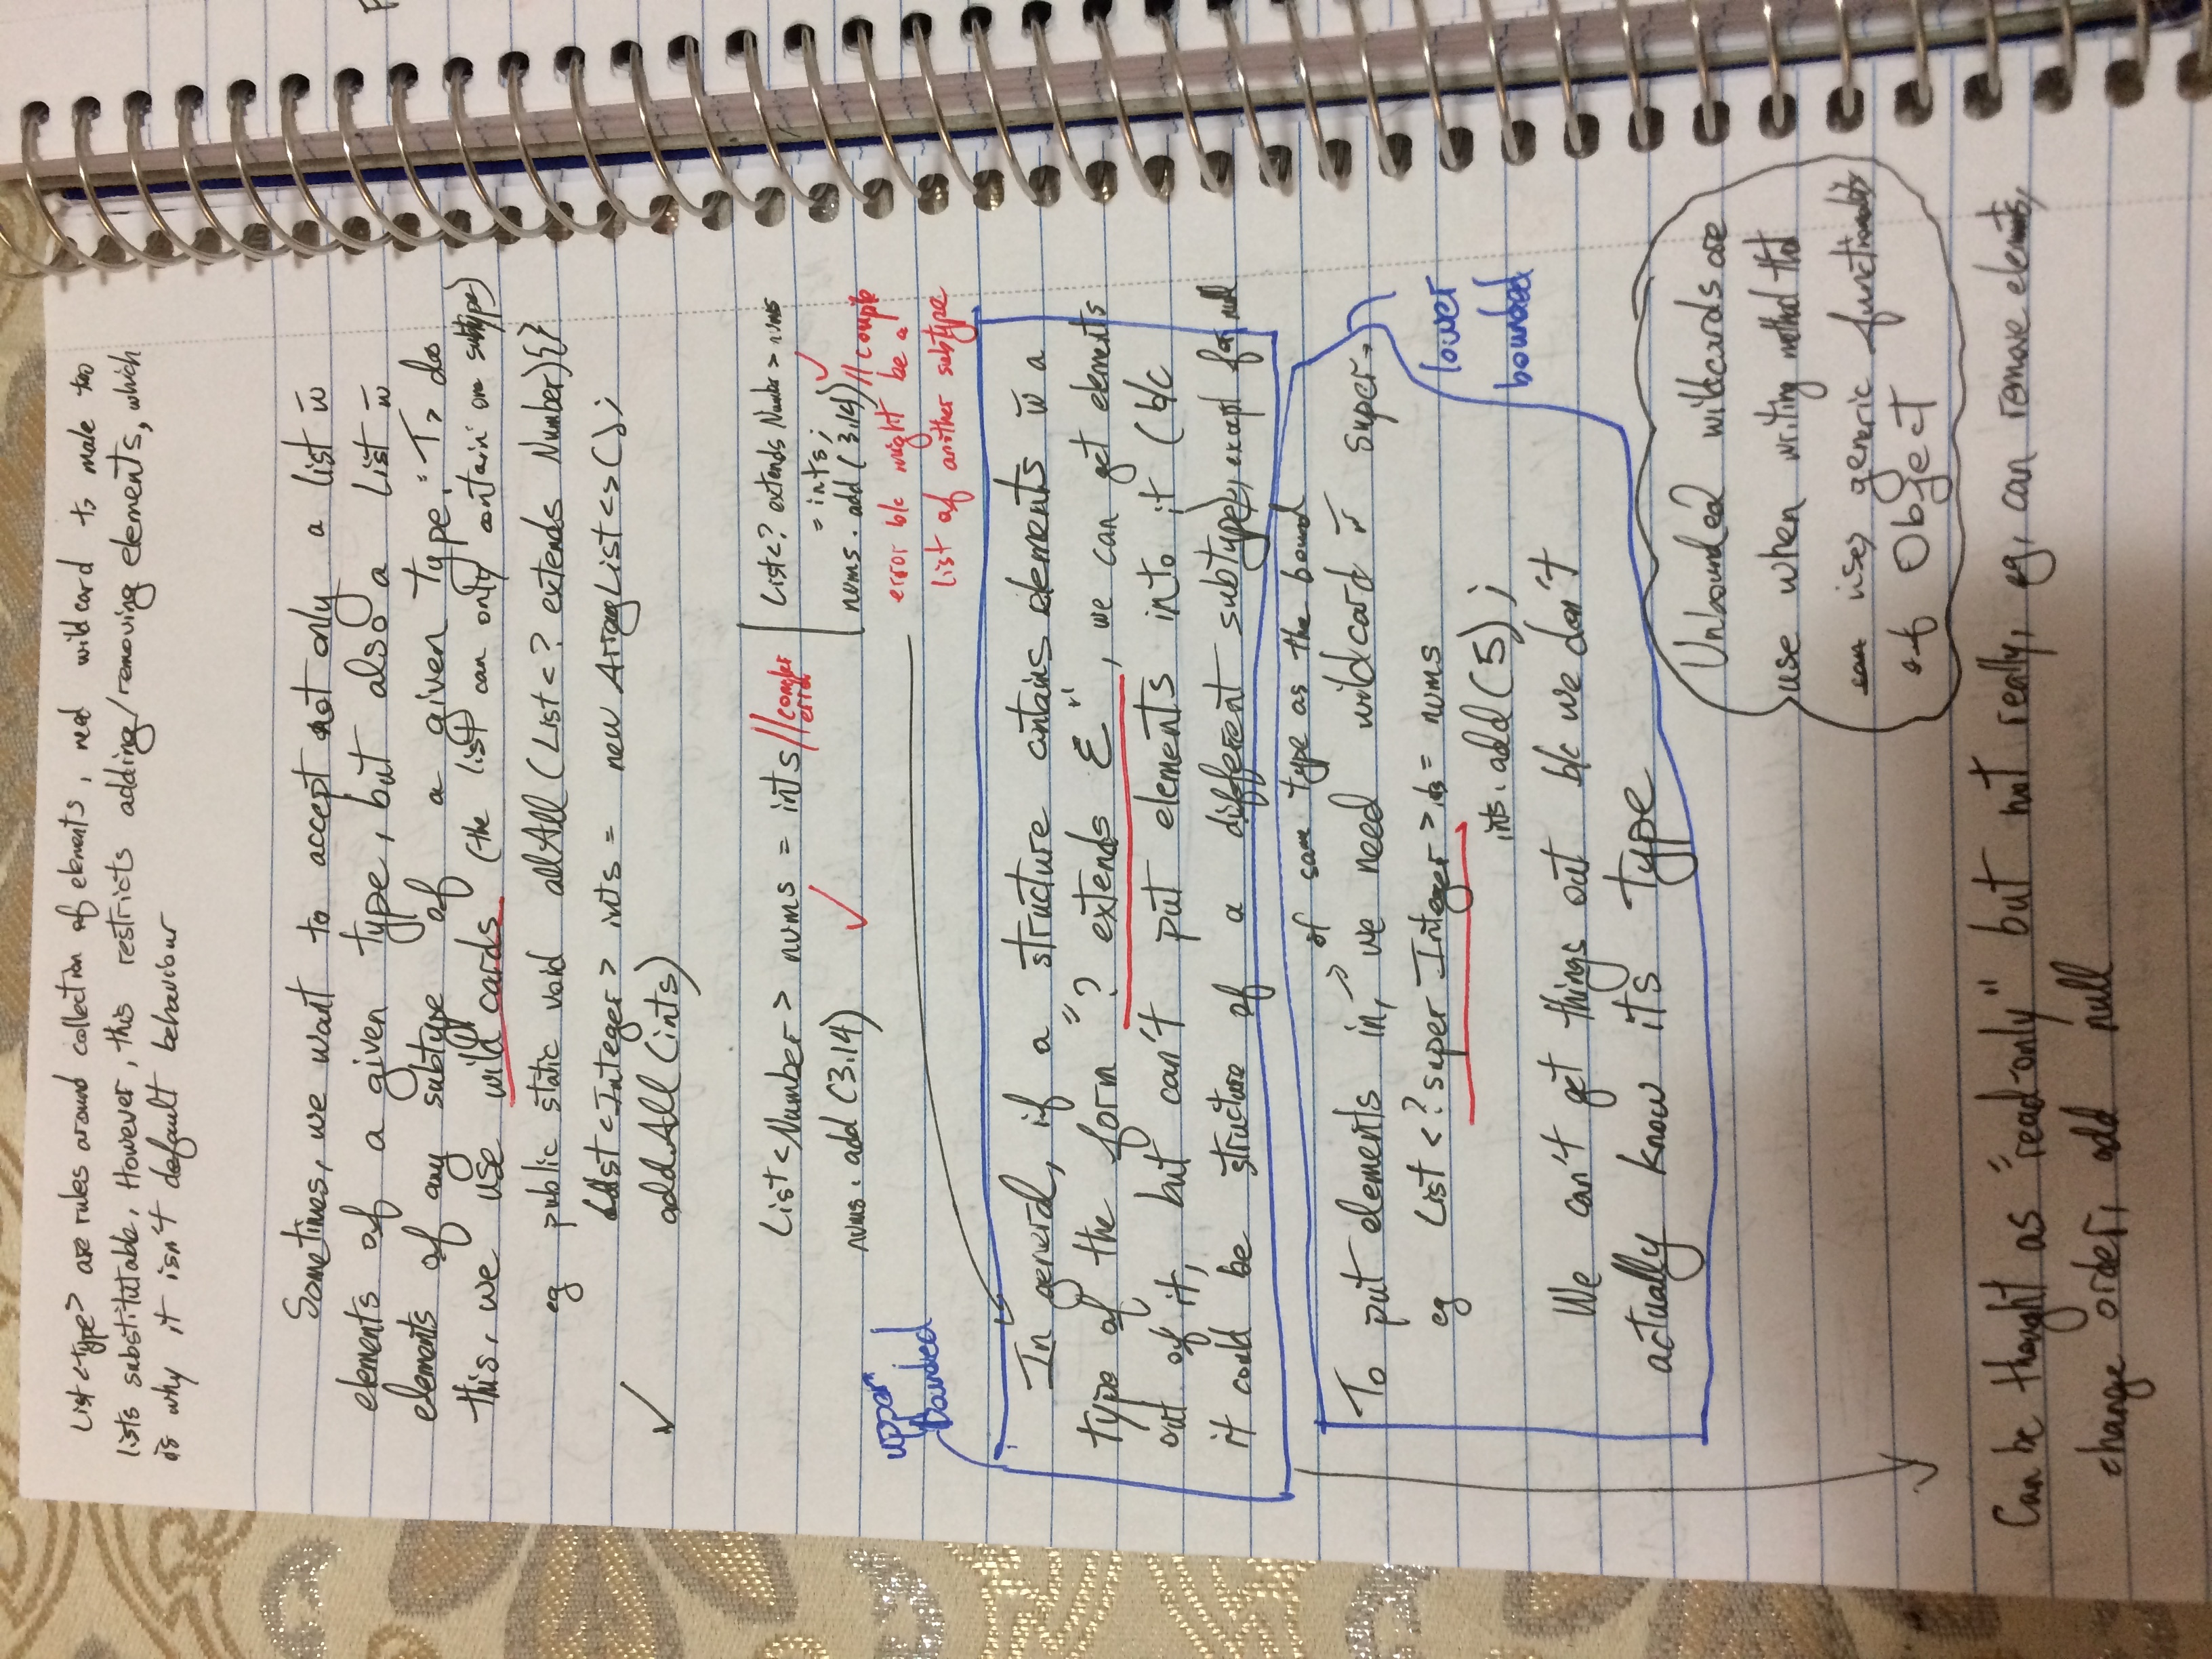 List<type> are rules around collection of elements, need wildcard to make two
lists substitutable. However, this restricts adding/removing elements, which
is why it isn't default behaviour
Sometimes, we want to accept not only a list w̄
elements of a given type, but also a List w̄
elements of any subtype of a given type. To do
this, we use wild cards (the list can only contain one subtype)
eg public static void allAll (List<? extends Number){}
List<Integer> ints = new ArrayList<>();
✓ addAll (ints)
List<Number> nums = ints //compiler
error
nums.add (3.14) ✓
List<? extends Number> nums
= ints; ✓
nums.add (3.14) //compile
error b/c might be a
list of another subtype
upper
bounded
In general, if a structure contains elements w̄ a
type of the form "? extends E", we can get elements
out of it, but can't put elements into it (b/c
it could be structure of a different subtype), except for null
of same type as the bound
To put elements in, we need wildcard w̄ super.
eg List <? super Integer> = nums
ints.add(5);
We can't get things out b/c we don't
actually know its type
lower
bounded
Unbounded wildcards are
use when writing method that
can uses generic functionality
of Object
Can be thought as "read-only" but not really, eg, can remove elements,
change order, add null